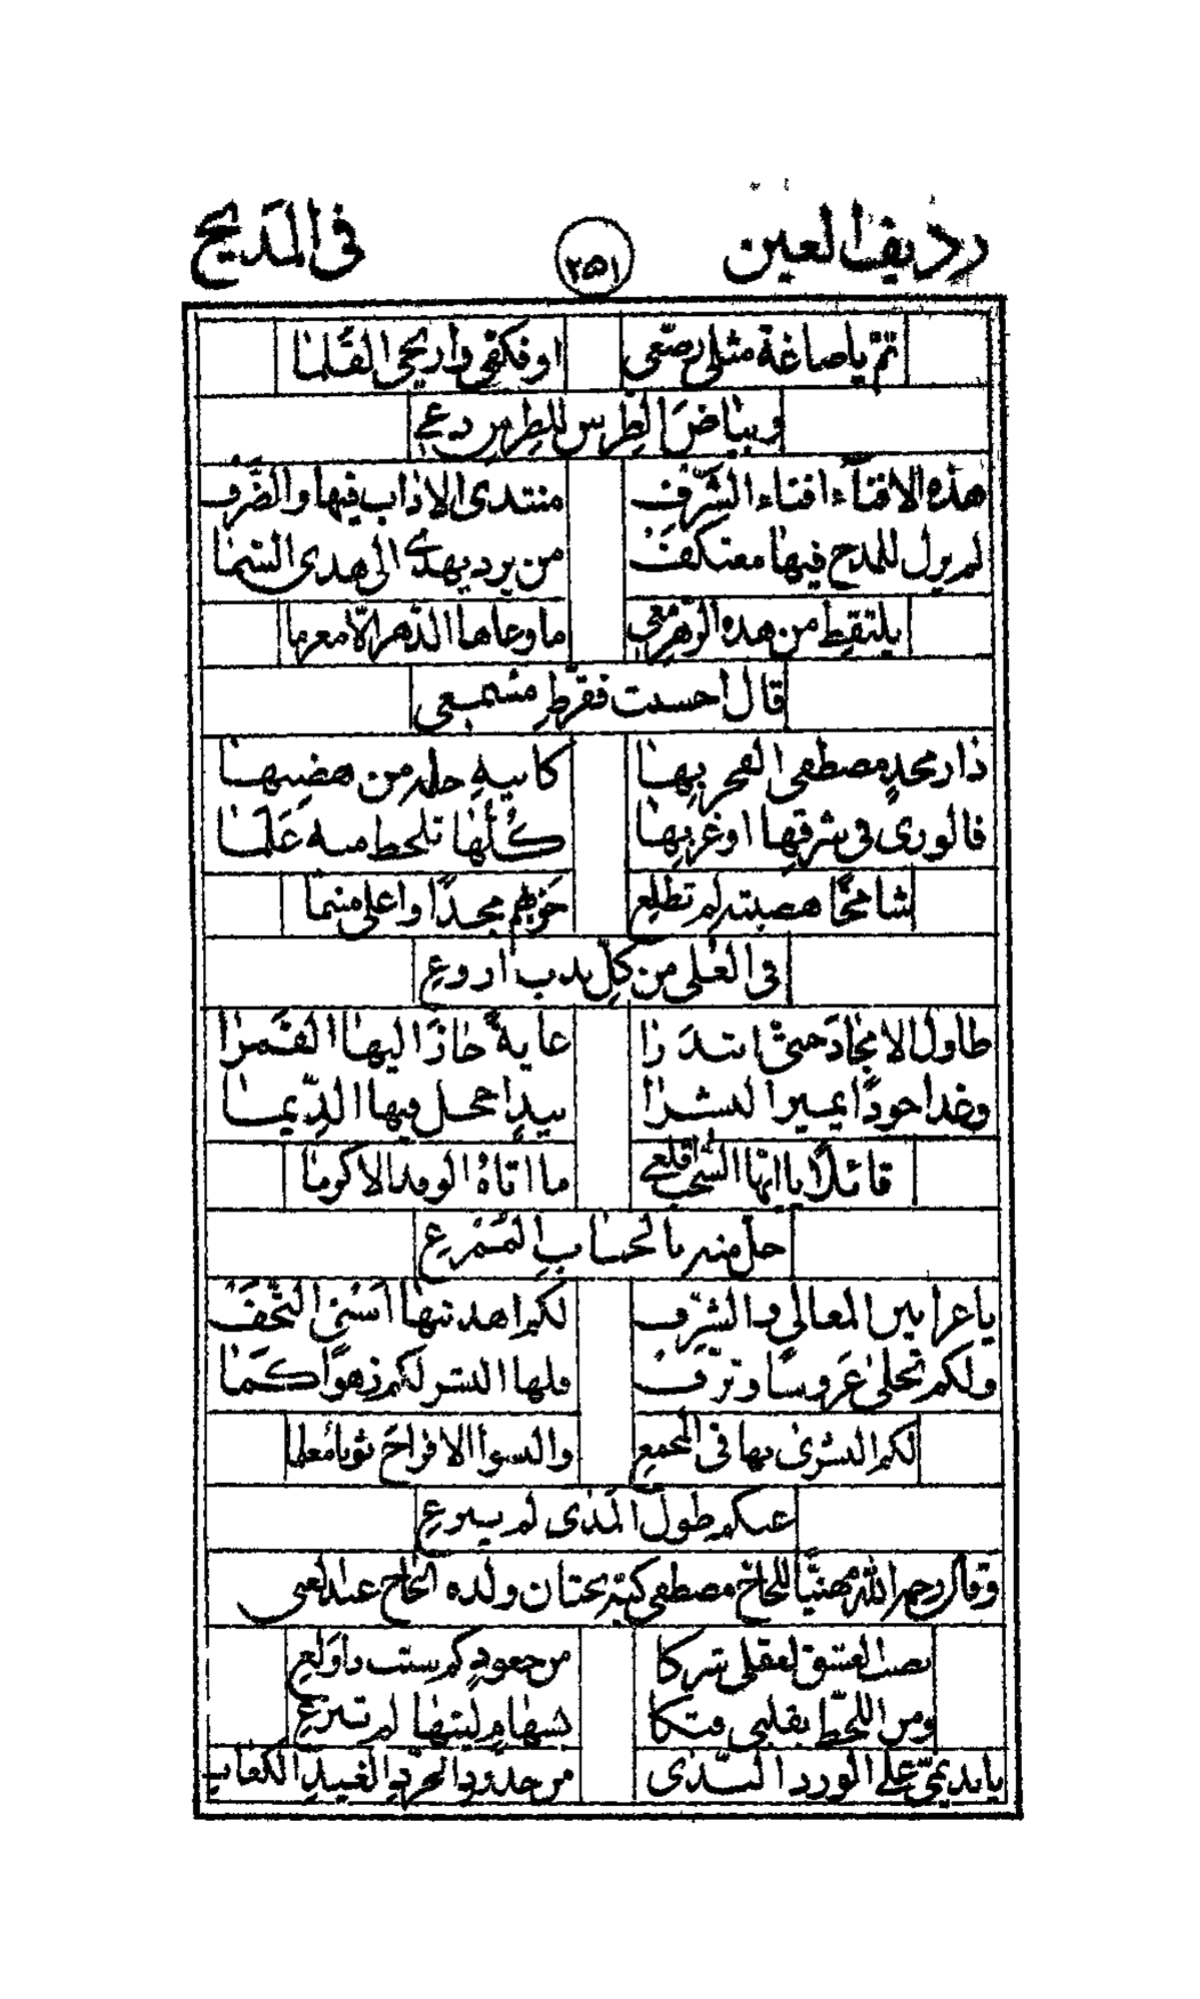 رديف العين ٢٥١ في المديح
تمّ يا صاغة مثلي رصّعي او فكفّي واريحي القلما
وبياضَ الطِرسِ للطِرسِ دعي
هذه الافتآء افناء الشرَفِ منتدى الاداب فيها والظَرف
لم يزل للمدح فيها معتكفْ من يرد يهدى الى هدى السما
يلتقِط من هذه الزهر معي ما وعاها الدهر الّا مغرما
قال احسنت فقرّط مسمعي
دار مجدٍ مصطفى الفخر بها كابيهِ حلّ من هضبها
فالورى في شرقها او غربها كُلّها تلحظ منه عَلَما
شامخًا هضبته لم تطلع مجدًا واعلى منتما
في العُلى من كلّ ندب اروعِ
طاول الامجادَ حتى ابتدرا غايةً حازَ اليها القمرا
وغدا جودًا يمير البشرا بيدٍ اخجل فيها الدِّيما
قائلًا يا ايّها السُحب اقلعي ما اتاهُ الوفد الا كرما
حلّ منه بالجناب المُمْرعِ
يا عرانين المعالي والشرَف لكم اهديتها اسنى التُحَفْ
ولكم تجلى عَروسًا وتزفْ ولها البشر لكم زهوًا كما
لكم البشرى بها في المجمعِ والبسوا الافراحَ ثوبا مُعلما
عنكم طول المدى لم ينزعِ
وقال رحمه الله مهنيًّا للحاج مصطفى كبّه بختان ولده الحاج عبد الغني
نصب العشق لعقلي شركا من جعودٍ كم سبت ذا وَلعِ
ومن اللحظ بقلبي فتكا بسهامٍ ليتها لم تنزعِ
يا نديميّ على الورد الندّى من خدود الخرّدِ الغيد الكعابِ